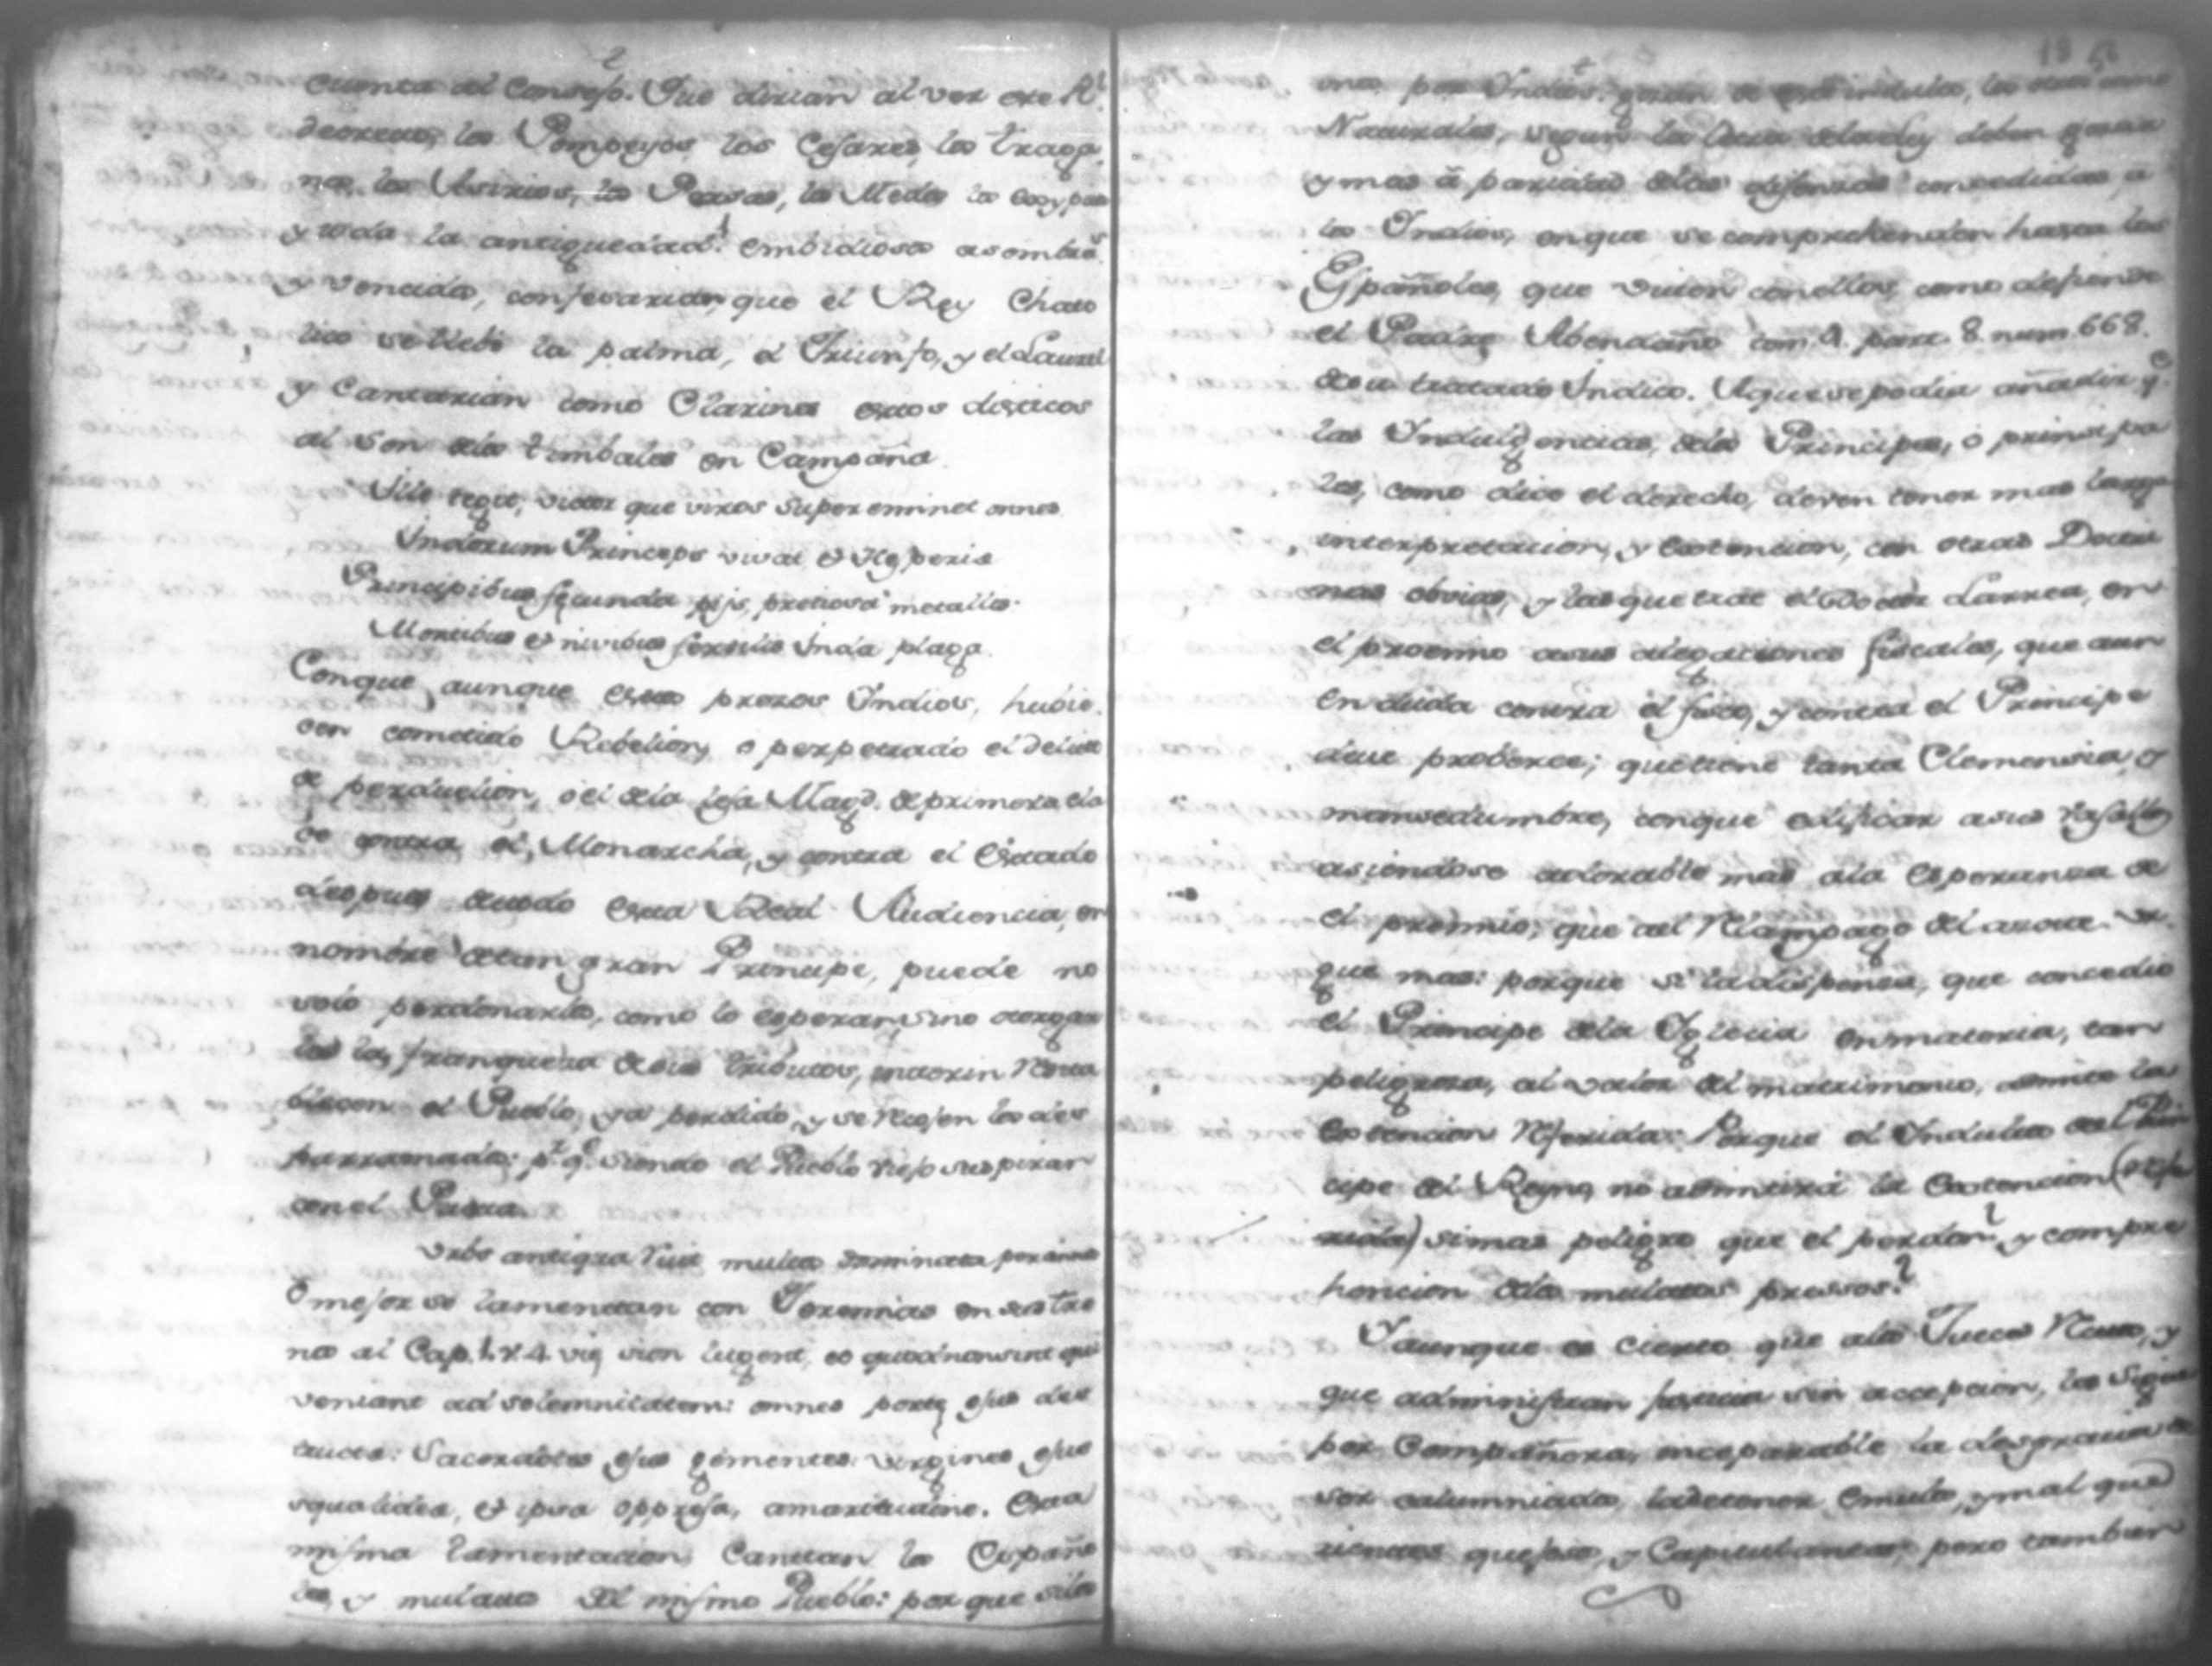 cuenta al Consejo. Que dirian al ver ese Rl.
decreto, los Pompeyos los Cesares, los Traga
nos, los Asirios, los Persas, los Medos los
y toda la antiguedad? embidiosa asombra
y vencida, confesarian, que el Rey Chato
lico se llebó la palma, el Triunfo, y el Laurel
y Cantarian como Clarines estos disticos
al son de los timbales en Campaña.
Ille regit, victor que viros super eminet omnes
Indorum Princeps vivat, et Hesperie
Principibus fecunda pijs, pretiosa metallis
Montibus et rivibus fertilis Inda plaga.
Conque aunque estos prezos Indios, hubie
sen cometido Rebelion, o perpetrado el delito
de perduelion, o el de la lesa Magd. de primera cla
se contra el Monarcha, y contra el Estado
despues de todo esta Real Audiencia, en
nombre de tan gran Principe, puede no
solo perdonarlos, como lo esperan, sino otorgar
les la franqueza de sus tributos, interin Resta
blecen el Pueblo, ya perdido, y se Recojen los des
parramados: pr. q. siendo el Pueblo viejo suspiran
con el Poeta.
Urbs antiqua ruit multos dominata per annos
O mejor se lamentan con Jeremias en sus tre
nos al Cap. 1. v. 4. vie sion lugent, eo quod non sint qui
veniant ad solemnitatem: omnes porte ejus des
tructe: Sacerdotes ejus gementes: virgines ejus
squalides, et ipsa oppresa, amaritudine. Esta
misma lamentacion, Cantan los Españo
les, y mulatos del mismo Pueblo: por que si los
unos por Indios gozan de este indulto, los otros como
Naturales, segun la letra de la ley deben gozar
y mas á paridad de las defensas concedidas, a
los Indios, en que se comprehenden hasta los
Españoles, que viven con ellos, como defiende
el Padre Abendaño tom. 1. part. 8. num. 668.
de su tratado Indico. A que se podia añadir qe.
las Indulgencias, de los Principes, o principa
les, como dice el derecho, deven tener mas larga
interpretacion, y Extencion, con otras Doctri
nas obvias, y las que trae el Doctor Larrea, en
el proemio a sus alegaciones fiscales, que aun
en duda contra el fisco, y contra el Principe
deve proberce; que tiene tanta Clemencia, y
mansedumbre, con que edificar a sus vasallos
asiendose adorable mas a la Esperanza de
el premio; que al Relampago del azote. Y
que mas: porque si la dispensa, que concedio
el Principe de la Iglecia en materia, tan
peligroza, al valor del matrimonio, admite la
Extencion Referida: Porque el Indulto del Prin
cipe del Reyno, no admitirá la Extencion (refe
rida) si mas peligro que el perdon? y compre
hencion de los mulatos pressos?
Y aunque es cierto que a los Jueces Rectos, y
que administran justicia sin accepcion, les sigue
por Compañera, inceparable la desgracia de
ser calumniados, los de tener Emulos, y mal que
rientes quejosos, y Capitulantes; pero tambien